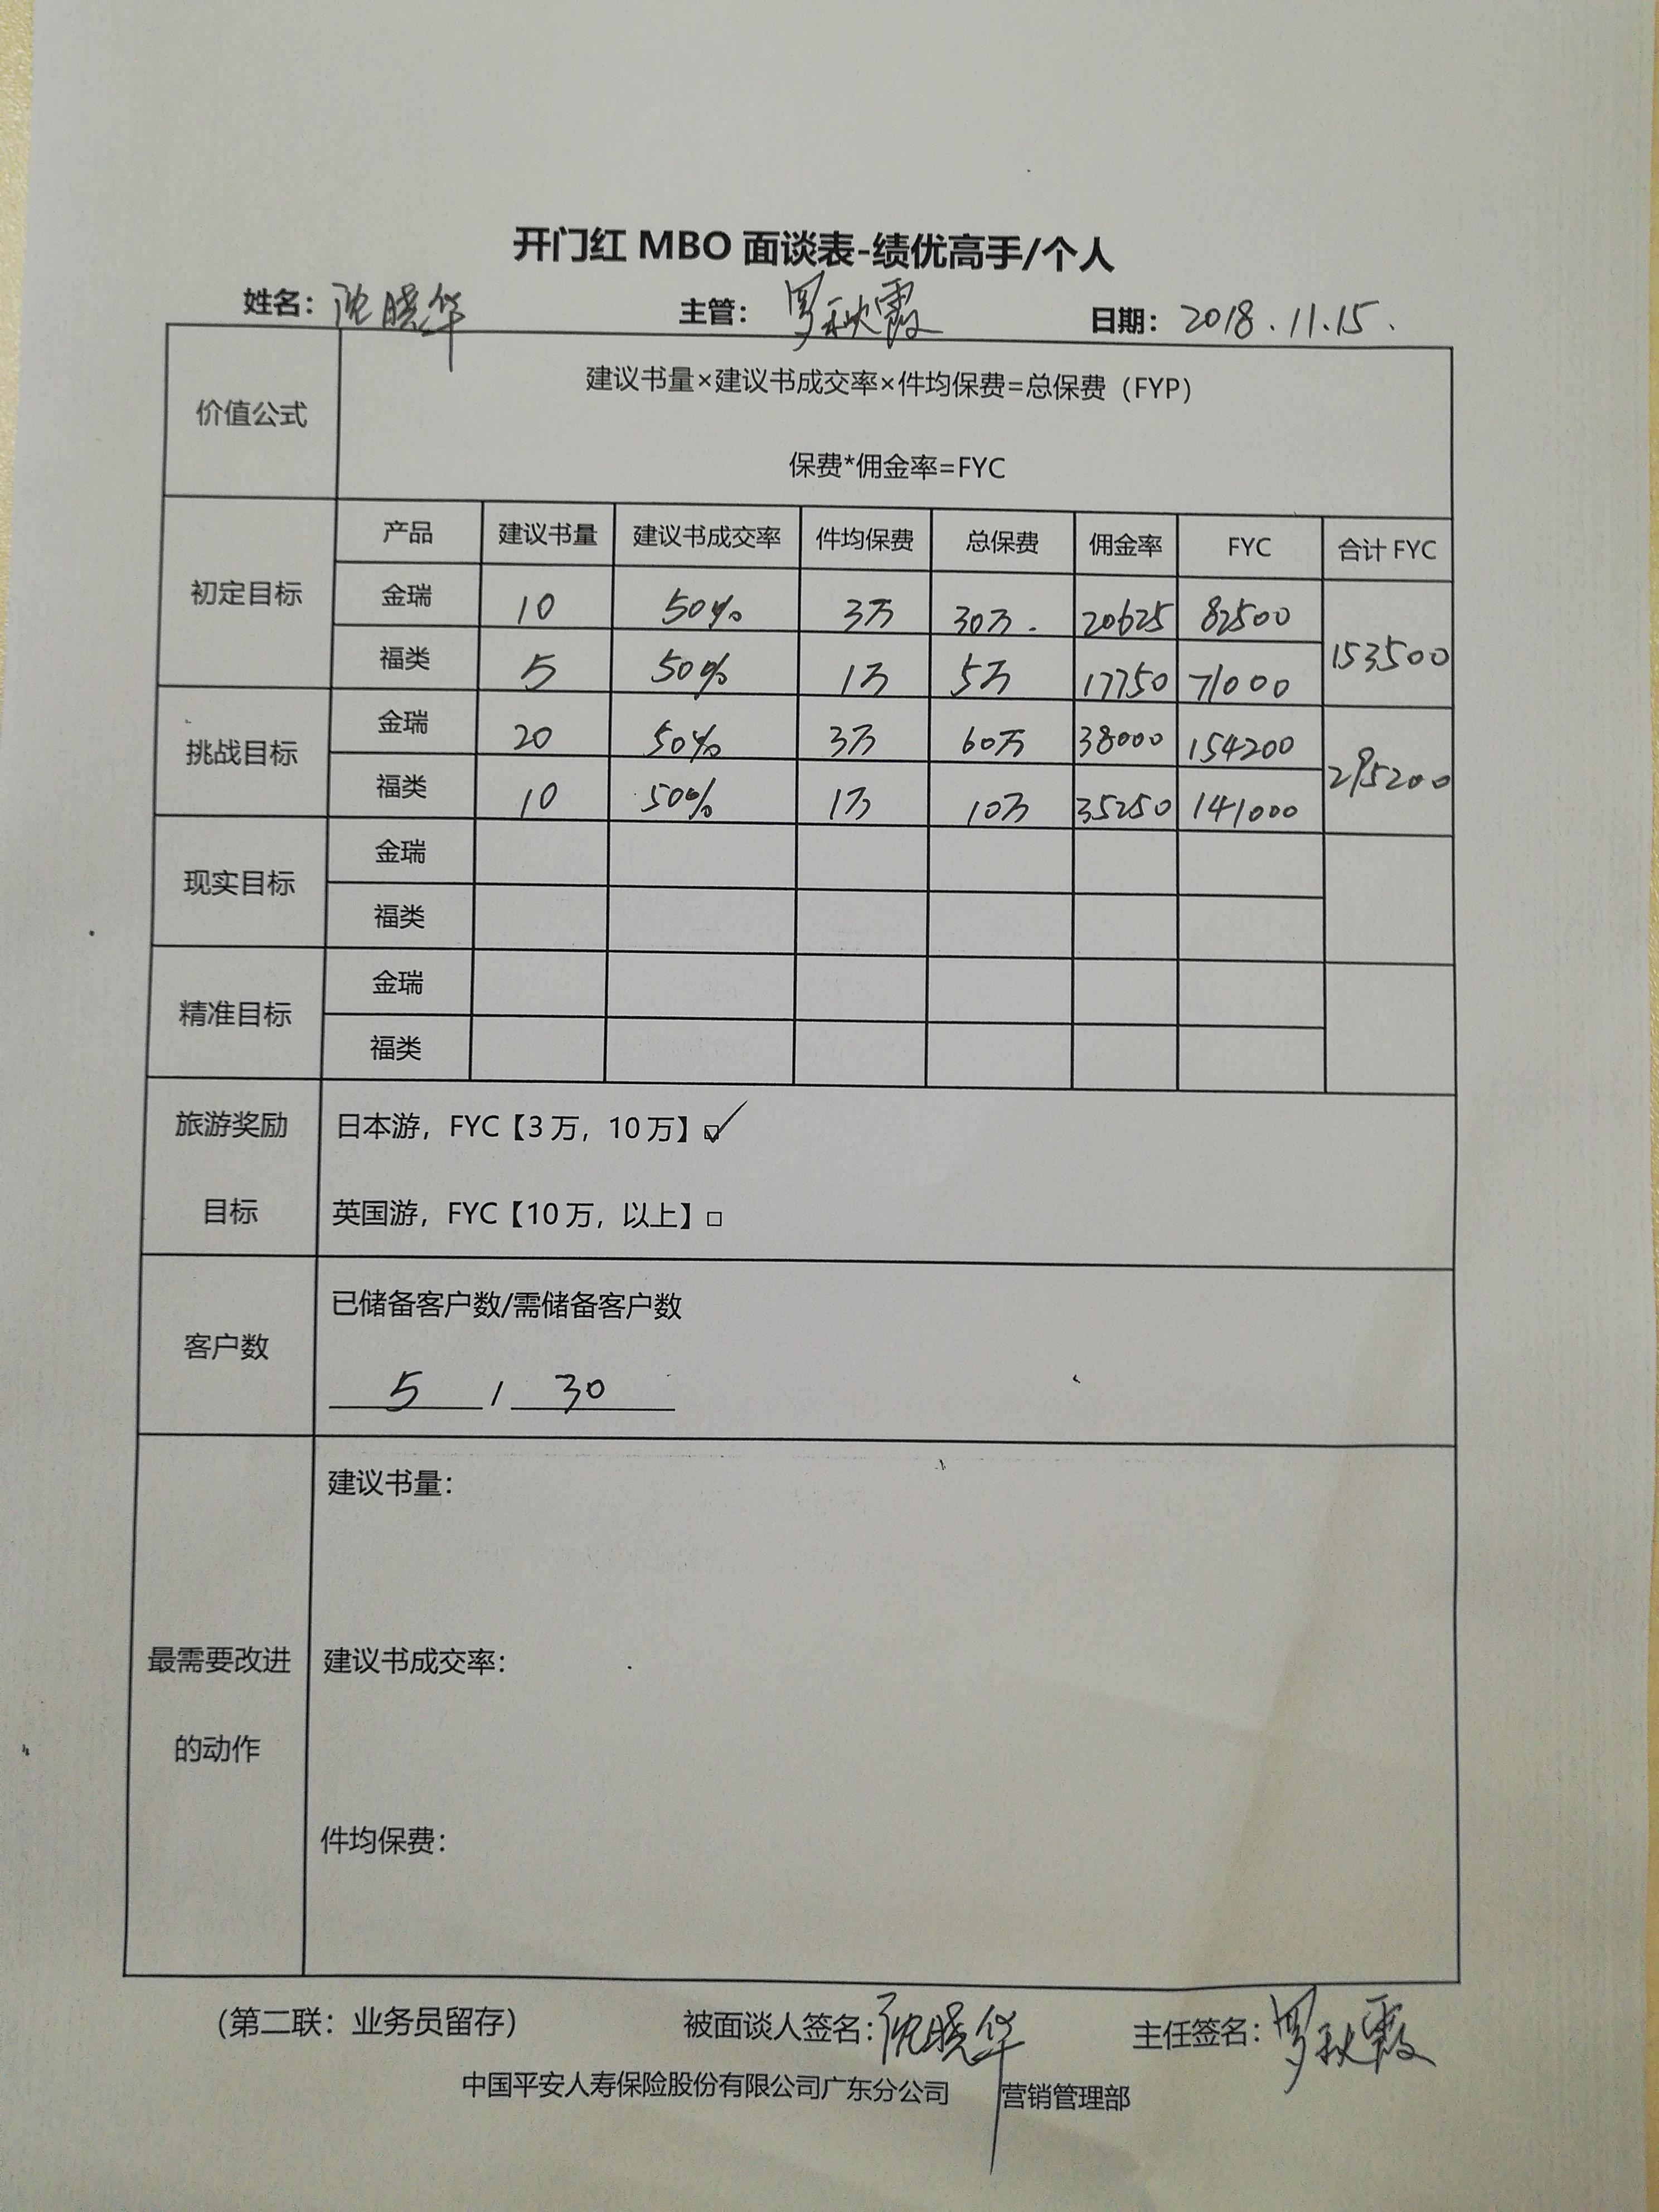 开门红 MBO 面谈表-绩优高手/个人
姓名：沈晓华 主管：罗秋霞 日期：2018.11.15.
价值公式
建议书量×建议书成交率×件均保费=总保费（FYP）
保费*佣金率=FYC
产品 建议书量 建议书成交率 件均保费 总保费 佣金率 FYC 合计 FYC
初定目标
金瑞 10 50% 3万 30万. 20625 82500
153500
福类 5 50% 1万 5万 17750 71000
挑战目标
金瑞 20 50% 3万 60万 38000 154200
295200
福类 10 50% 1万 10万 35250 141000
现实目标
金瑞
福类
精准目标
金瑞
福类
旅游奖励
目标
日本游，FYC【3万，10万】☑
英国游，FYC【10万，以上】□
客户数
已储备客户数/需储备客户数
5 / 30
最需要改进
的动作
建议书量：
建议书成交率：
件均保费：
（第二联：业务员留存） 被面谈人签名：沈晓华 主任签名：罗秋霞
中国平安人寿保险股份有限公司广东分公司 营销管理部